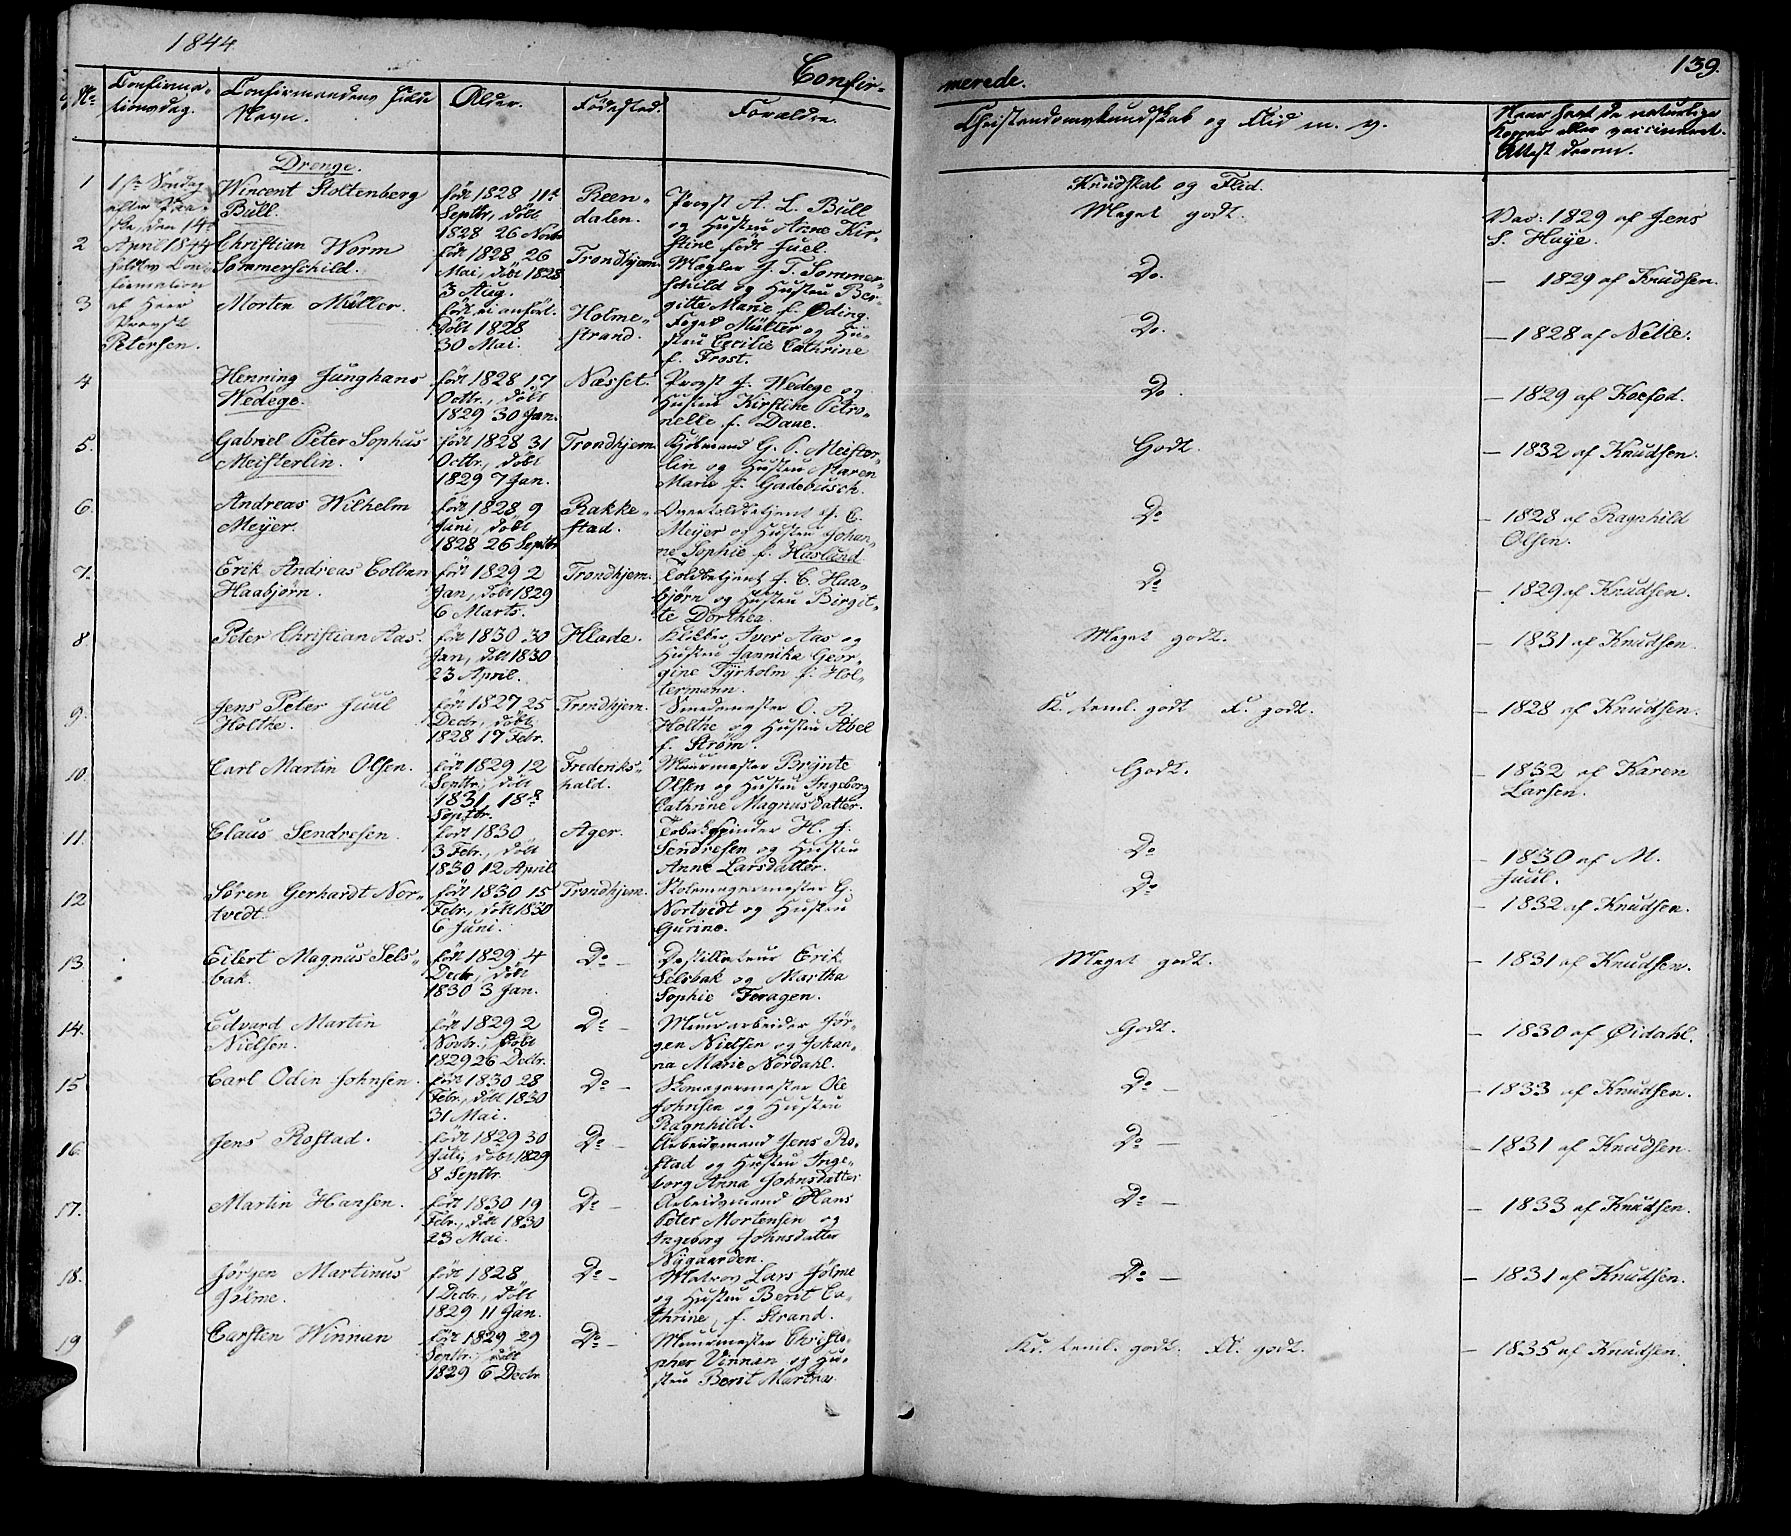 1844
Confir-
merede.
139.
No
Confirma-
tionsdag.
Confirmandens fulde
Navn.
Alder.
Fødested.
Forældre.
Christendomskundskab og Flid m. v.
Naar havt de naturlige
Kopper eller vaccineret.
Attest derom.
Drenge.
1ste Søndag
efter Paa-
ske, den 14de
April 1844
holdtes Con-
firmation
af Herr
Provst
Petersen.
1
Wincent Stoltenberg
Bull.
født 1828 11te
Septbr, døbt
1828 26 Novbr
Reen-
dalen.
Provst A. L. Bull
og Hustru Anne Kir-
stine født Juel
Kundskab og Flid.
Meget godt.
Vac: 1829 af Jens
S. Haye.
2
Christian Worm
Sommerschild.
født 1828 26
Mai, døbt 1828
3 Aug.
Trondhjem.
Mægler J. T. Sommer-
schild og Hustru Ber-
gitte Marie f. Øding.
Do.
— 1829 af Knudsen.
3
Morten Müller.
født ei anført.
Døbt 1828
30 Mai.
Holme-
strand.
Foged Müller og Hu-
stru Cecilie Cathrine
f. Frost.
Do.
— 1828 af Nelle.
4
Henning Junghans
Wedege.
født 1828 17
Octbr., døbt
1829 30 Jan.
Næsset.
Provst J. Wedege og
Hustru Kirstine Petro-
nelle f. Daue.
Do.
— 1829 af Koefod.
5.
Gabriel Peter Sophus
Meisterlin.
født 1828 31
Octbr., døbt
1829 7 Jan.
Trondhjem.
Kjøbmand G. P. Meister-
lin og Hustru Maren
Marie f. Gadebusch.
Godt.
— 1832 af Knudsen.
6.
Andreas Wilhelm
Meyer.
født 1828 9
Juni, døbt
1828 26 Septbr
Rakke-
stad.
Overtoldbetjent J. C.
Meyer og Hustru Johan-
ne Sophie f. Hasland
Do
— 1828 af Ragnhild
Olsen.
7.
Erik Andreas Colban
Haabjørn.
født 1829 2
Jan, døbt 1829
6 Marts.
Trondhjem.
Toldbetjent J. C. Haa-
bjørn og Hustru Birgit-
te Dorthea
Do
— 1829 af Knudsen.
8
Peter Christian Aas.
født 1830 30
Jan, døbt 1830
23 April.
Hlade.
Klokker Iver Aas og
Hustru Jannika Geor-
gine Tyrholm f. Hol-
termann.
Meget godt.
— 1831 af Knudsen.
9.
Jens Peter Juul
Holthe.
født 1827 25
Decbr, døbt
1828 17 Febr.
Trondhjem.
Smedemester O. A.
Holthe og Hustru Abel
f. Strøm.
K. teml. godt F. godt.
— 1828 af Knudsen.
10.
Carl Martin Olsen.
født 1829 12
Septbr, døbt
1831, 18de
Septbr.
Frederiks-
hald.
Muurmester Brynte
Olsen og Hustru Ingeborg
Cathrine Magnusdatter.
Godt.
— 1832 af Karen
Larsen.
11.
Claus Sendresen.
født 1830
3 Febr., døbt
1830 12 April
Ager.
Tobakspinder H. J.
Sendresen og Hustru
Anne Larsdatter.
Do
— 1830 af M.
Juul.
12
Søren Gerhardt Nor-
tvedt.
født 1830 15
Febr., døbt 1830
6 Juni.
Trondhjem.
Stolemagermester G.
Nortvedt og Hustru
Gurine.
Do
— 1832 af Knudsen.
13.
Eilert Magnus Sels-
bak.
født 1829 4
Decbr, døbt
1830 3 Jan.
Do —
Destillateur Erik
Selsbak og Martha
Sophie Foragen.
Meget godt.
— 1831 af Knudsen.
14.
Edvard Martin
Nielsen.
født 1829 2
Novbr., døbt
1829 26 Decbr.
Do —
Muurarbeider Jør-
gen Nielsen og Johan-
na Marie Nordahl.
Godt.
— 1830 af Øidahl.
15
Carl Odin Johnsen.
født 1830 28
Febr., døbt 1830
31 Mai.
Do —
Skomagermester Ole
Johnsen og Hustru
Ragnhild.
Do —
— 1833 af Knudsen.
16.
Jens Rostad.
født 1829 30
Juli, døbt 1829
8 Septbr.
Do —
Arbeidsmand Jens Ro-
stad og Hustru Inge-
borg Anna Johnsdatter
Do —
— 1831 af Knudsen.
17.
Martin Hansen.
født 1830 19
Febr., døbt 1830
23 Mai.
Do —
Arbeidsmand Hans
Peter Mortensen og
Ingeborg Johnsdatter
Nygaarden.
Do —
— 1833 af Knudsen.
18.
Jørgen Martinus
Jølme.
født 1828
1 Decbr., døbt
1829 11 Jan.
Do —
Matros Lars Jølme
og Hustru Berit Ca-
thrine, f. Strand.
Do —
— 1831 af Knudsen.
19
Carsten Winnan
født 1829 29
Septbr., døbt
1829 6 Decbr
Do —
Muurmester Christo-
pher Vinnan og Hu-
stru Berit Martha
Kd. teml. godt. Fl. godt.
— 1835 af Knudsen.